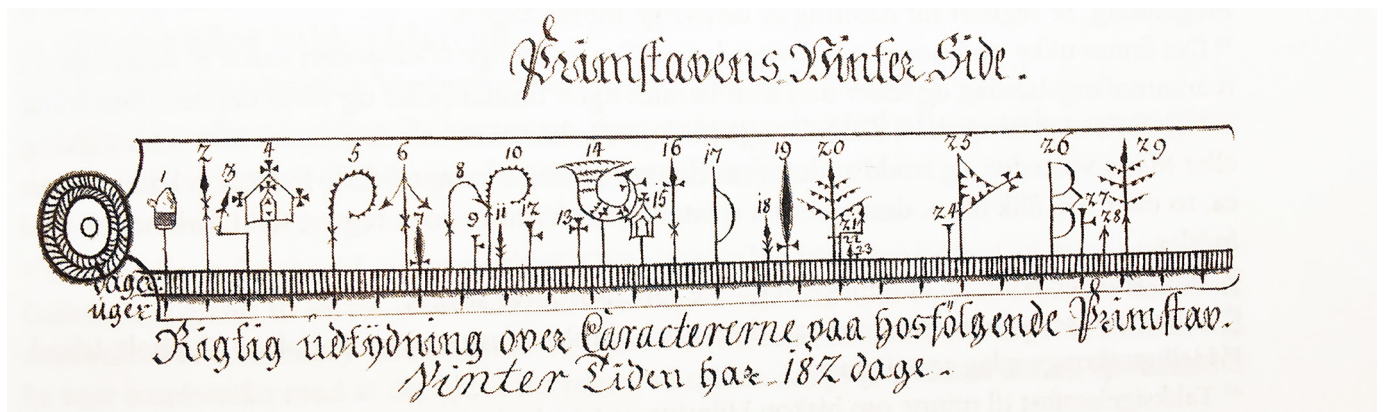 Primstavens Vinter Side.
1 2 3 4 5 6 7 8 9 10 11 12 13 14 15 16 17 18 19 20 21 22 23 24 25 26 27 28 29
dage
uger
Rigtig üdtÿdning over Caractererne paa hosfölgende Primstav.
Vinter Tiden har 182 dage.